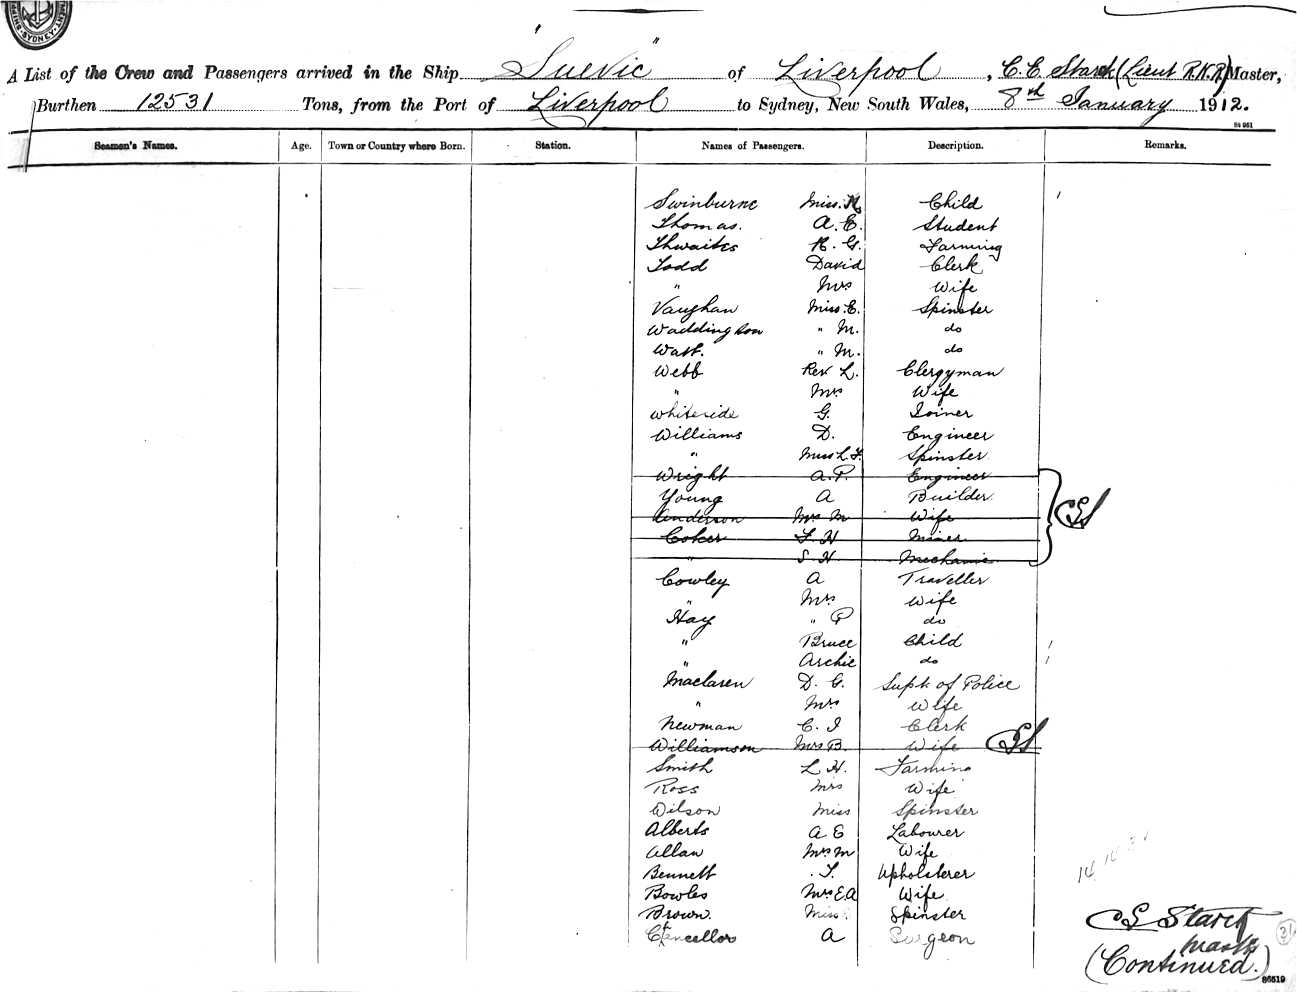 MENT. SYDNEY. SHIPP
A List of the Crew and Passengers arrived in the Ship "Suevic" of Liverpool, C. E. Starck (Lieut R.N.R) Master,
Burthen 12531 Tons, from the Port of Liverpool to Sydney, New South Wales, 8th January 1912.
84 961
Seamen's Names. Age. Town or Country where Born. Station. Names of Passengers. Description. Remarks.
Swinburne Miss. Child
Thomas. A. E. Student
Thwaites R. G. Farming
Todd David Clerk
" Mrs Wife
Vaughan Miss. E. Spinster
Waddington " M. do
Watt. " M. do
Webb Rev. L. Clergyman
" Mrs Wife
Whiteside G. Joiner
Williams D. Engineer
" Miss L. F. Spinster
Wright A. P. Engineer
Young A Builder
Anderson Mrs M Wife
Coker F H Miner
" S H Mechanic
Cowley A Traveller
" Mrs Wife
Hay " P do
" Bruce Child
" Archie do
Maclaren D. G. Supt of Police
" Mrs Wife
Newman C. J Clerk
Williamson Mrs B. Wife
Smith L. H. Farming
Ross Mrs Wife
Wilson Miss Spinster
Alberts A E Labourer
Allan Mrs M Wife
Bennett T. Upholsterer
Bowles Mrs E A Wife
Brown. Miss Spinster
Chancellor A Surgeon
C E Starck
Master
(Continued.)
86519